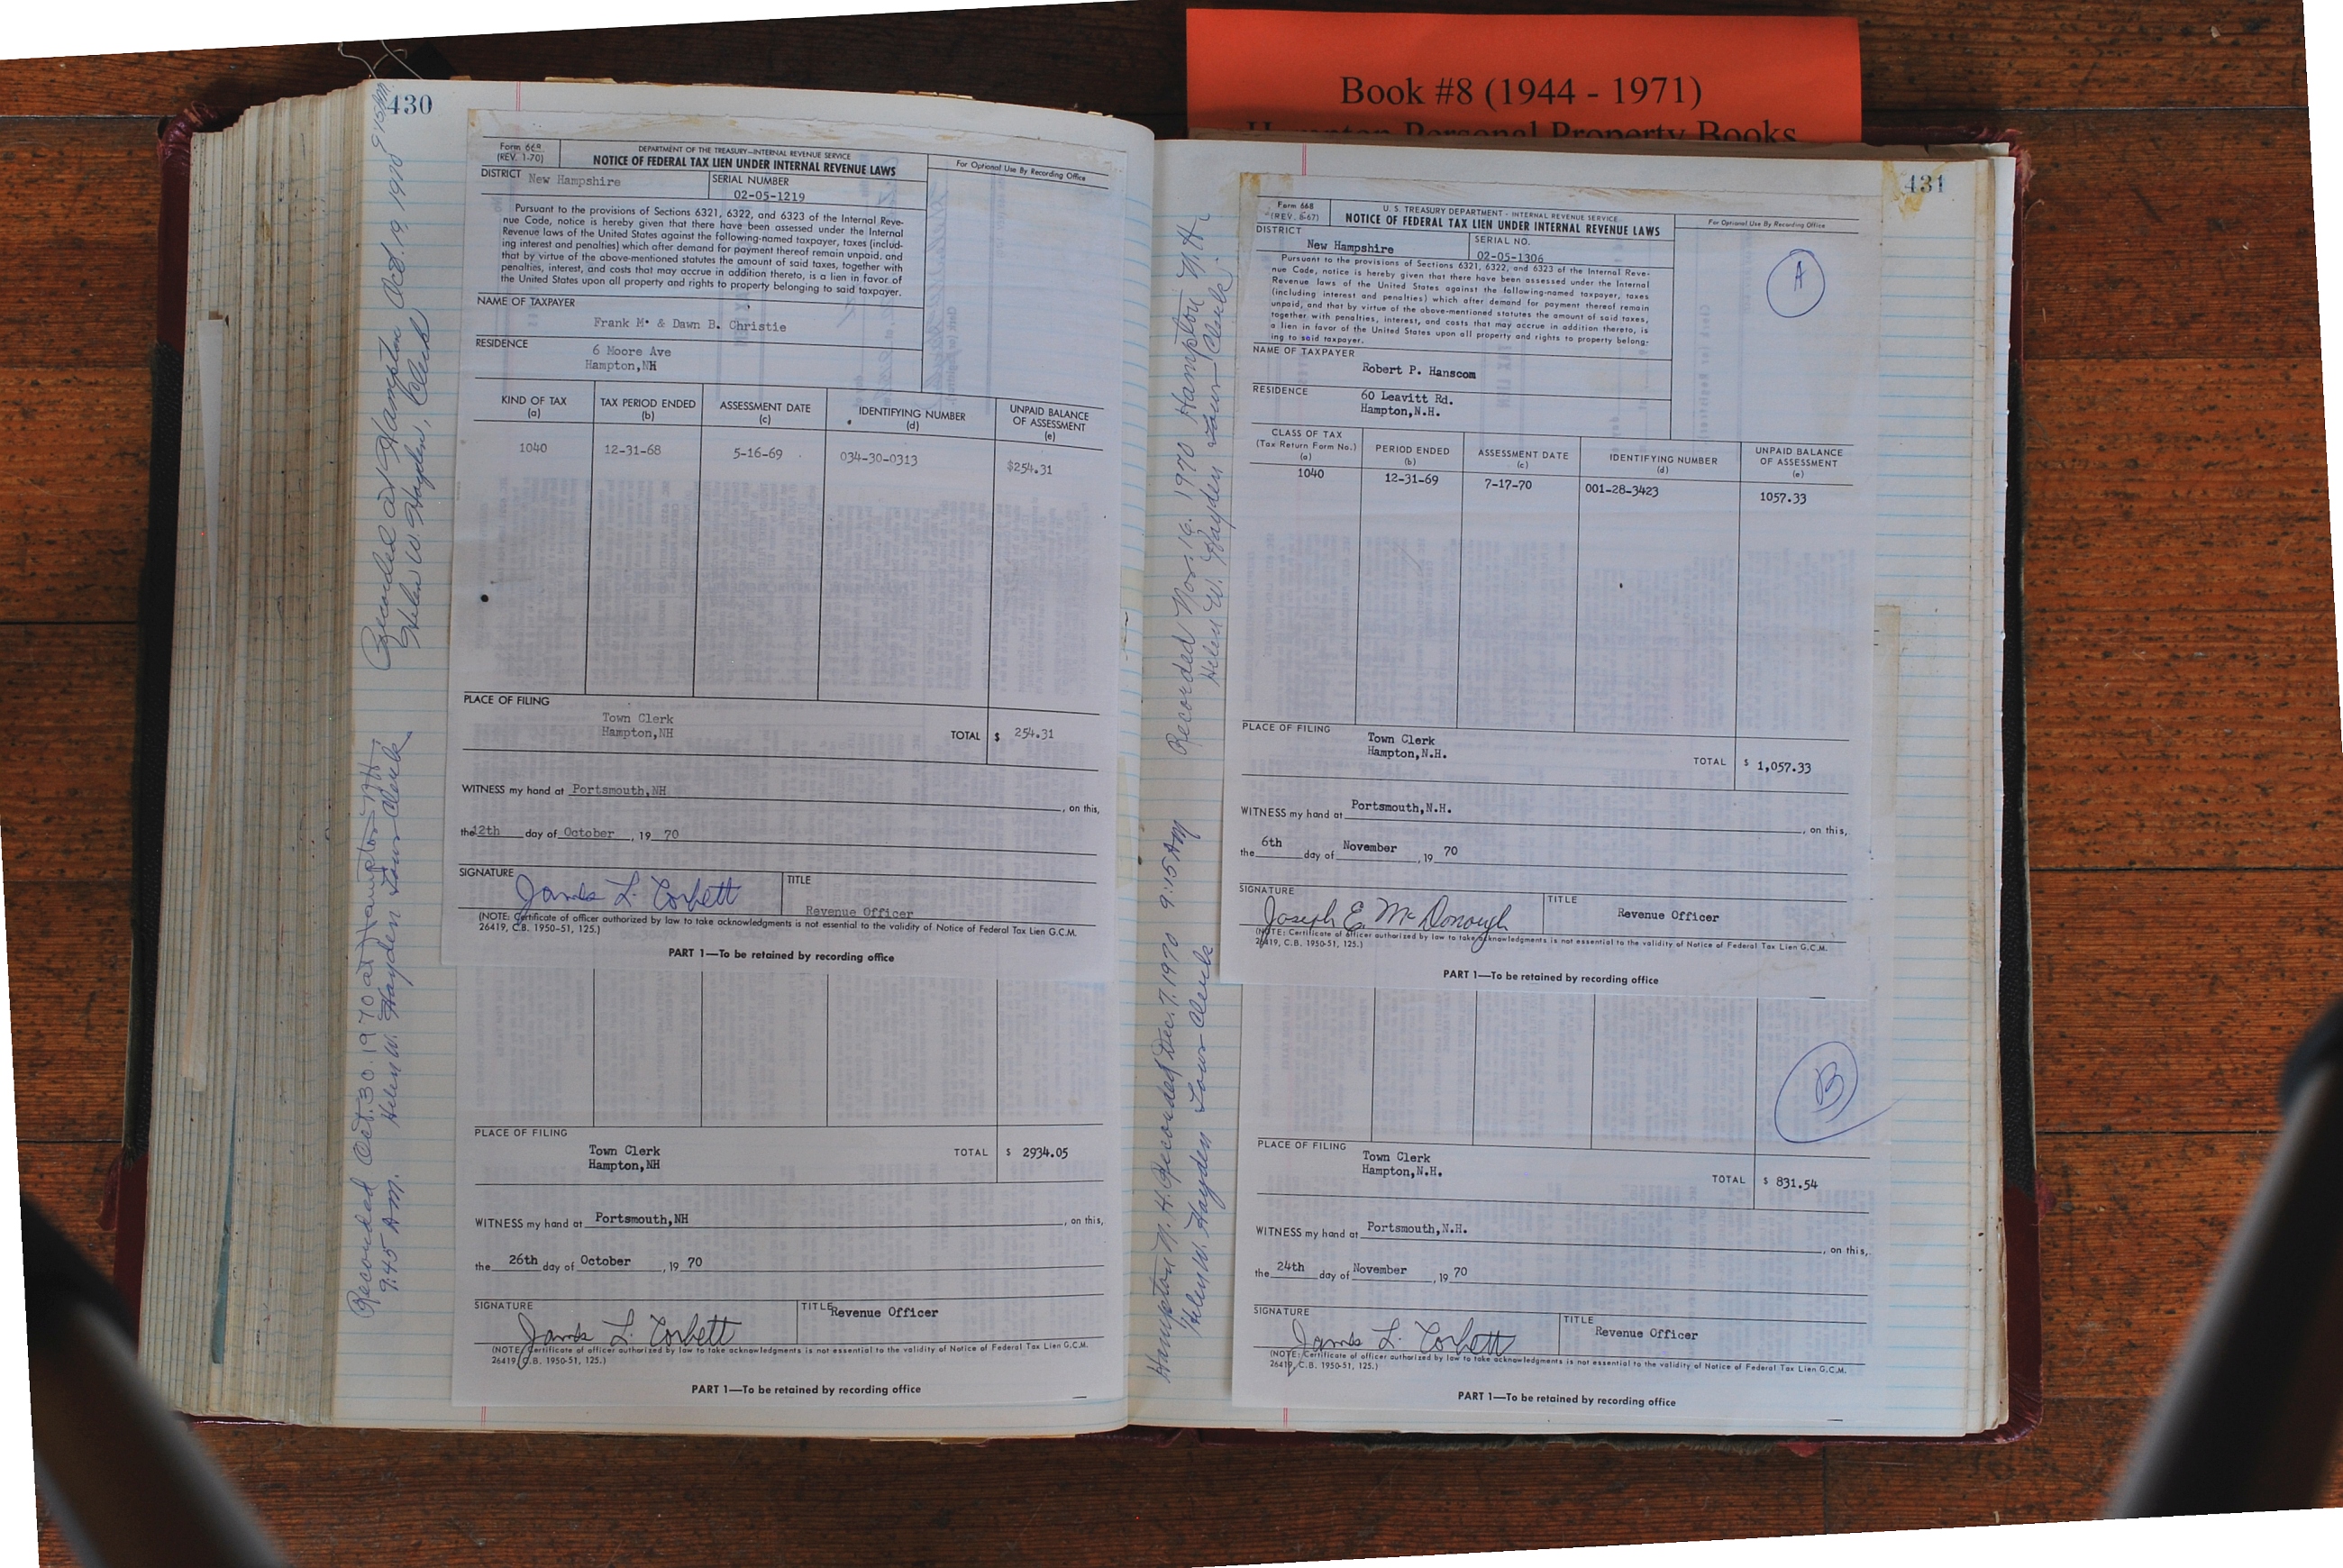 Book #8 (1944 - 1971)
Hampton Personal Property Books
430
Recorded at Hampton Oct. 19, 1970 9:15 AM
Helen W. Hayden, Clerk
Form 668
(REV. 1-70)
DEPARTMENT OF THE TREASURY—INTERNAL REVENUE SERVICE
NOTICE OF FEDERAL TAX LIEN UNDER INTERNAL REVENUE LAWS
For Optional Use By Recording Office
DISTRICT New Hampshire
SERIAL NUMBER
02-05-1219
Pursuant to the provisions of Sections 6321, 6322, and 6323 of the Internal Reve-
nue Code, notice is hereby given that there have been assessed under the Internal
Revenue laws of the United States against the following-named taxpayer, taxes (includ-
ing interest and penalties) which after demand for payment thereof remain unpaid, and
that by virtue of the above-mentioned statutes the amount of said taxes, together with
penalties, interest, and costs that may accrue in addition thereto, is a lien in favor of
the United States upon all property and rights to property belonging to said taxpayer.
NAME OF TAXPAYER
Frank M. & Dawn B. Christie
RESIDENCE
6 Moore Ave
Hampton,NH
KIND OF TAX (a) TAX PERIOD ENDED (b) ASSESSMENT DATE (c) IDENTIFYING NUMBER (d) UNPAID BALANCE OF ASSESSMENT (e)
1040 12-31-68 5-16-69 034-30-0313 $254.31
PLACE OF FILING
Town Clerk
Hampton,NH
TOTAL $ 254.31
WITNESS my hand at Portsmouth,NH , on this,
the 12th day of October , 19 70
SIGNATURE James L. Corbett
TITLE
Revenue Officer
(NOTE: Certificate of officer authorized by law to take acknowledgments is not essential to the validity of Notice of Federal Tax Lien G.C.M.
26419, C.B. 1950-51, 125.)
PART 1—To be retained by recording office
Recorded Oct. 30, 1970 at Hampton N.H.
9:45 A.M. Helen W. Hayden Town Clerk
PLACE OF FILING
Town Clerk
Hampton,NH
TOTAL $ 2934.05
WITNESS my hand at Portsmouth,NH , on this,
the 26th day of October , 19 70
SIGNATURE James L. Corbett
TITLE Revenue Officer
(NOTE: Certificate of officer authorized by law to take acknowledgments is not essential to the validity of Notice of Federal Tax Lien G.C.M.
26419, C.B. 1950-51, 125.)
PART 1—To be retained by recording office
431
Recorded Nov. 16, 1970 Hampton N.H.
Helen W. Hayden Town Clerk
Form 668
(REV. 8-67)
U. S. TREASURY DEPARTMENT - INTERNAL REVENUE SERVICE
NOTICE OF FEDERAL TAX LIEN UNDER INTERNAL REVENUE LAWS
For Optional Use By Recording Office
A
DISTRICT
New Hampshire
SERIAL NO.
02-05-1306
Pursuant to the provisions of Sections 6321, 6322, and 6323 of the Internal Reve-
nue Code, notice is hereby given that there have been assessed under the Internal
Revenue laws of the United States against the following-named taxpayer, taxes
(including interest and penalties) which after demand for payment thereof remain
unpaid, and that by virtue of the above-mentioned statutes the amount of said taxes,
together with penalties, interest, and costs that may accrue in addition thereto, is
a lien in favor of the United States upon all property and rights to property belong-
ing to said taxpayer.
NAME OF TAXPAYER
Robert P. Hanscom
RESIDENCE
60 Leavitt Rd.
Hampton,N.H.
CLASS OF TAX (Tax Return Form No.) (a) PERIOD ENDED (b) ASSESSMENT DATE (c) IDENTIFYING NUMBER (d) UNPAID BALANCE OF ASSESSMENT (e)
1040 12-31-69 7-17-70 001-28-3423 1057.33
PLACE OF FILING
Town Clerk
Hampton,N.H.
TOTAL $ 1,057.33
WITNESS my hand at Portsmouth,N.H. , on this,
the 6th day of November , 19 70
SIGNATURE Joseph E. McDonough
TITLE Revenue Officer
(NOTE: Certificate of officer authorized by law to take acknowledgments is not essential to the validity of Notice of Federal Tax Lien G.C.M.
26419, C.B. 1950-51, 125.)
PART 1—To be retained by recording office
Hampton N.H. Recorded Dec. 7, 1970 9:15 AM
Helen W. Hayden Town Clerk
B
PLACE OF FILING
Town Clerk
Hampton,N.H.
TOTAL $ 831.54
WITNESS my hand at Portsmouth,N.H. , on this,
the 24th day of November , 19 70
SIGNATURE James L. Corbett
TITLE Revenue Officer
(NOTE: Certificate of officer authorized by law to take acknowledgments is not essential to the validity of Notice of Federal Tax Lien G.C.M.
26419, C.B. 1950-51, 125.)
PART 1—To be retained by recording office